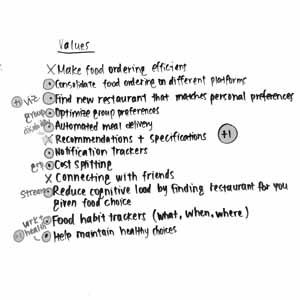 Values
X Make food ordering efficient
Consolidate food ordering on different platforms
+1 viz Find new restaurant that matches personal preferences
group Optimize group preferences
Automated meal delivery
Recommendations + specifications +1
Notification trackers
grp Cost splitting
X Connecting with friends
Stream Reduce cognitive load by finding restaurant for you
given food choice
Food habit trackers (what, when, where)
+1 health Help maintain healthy choices